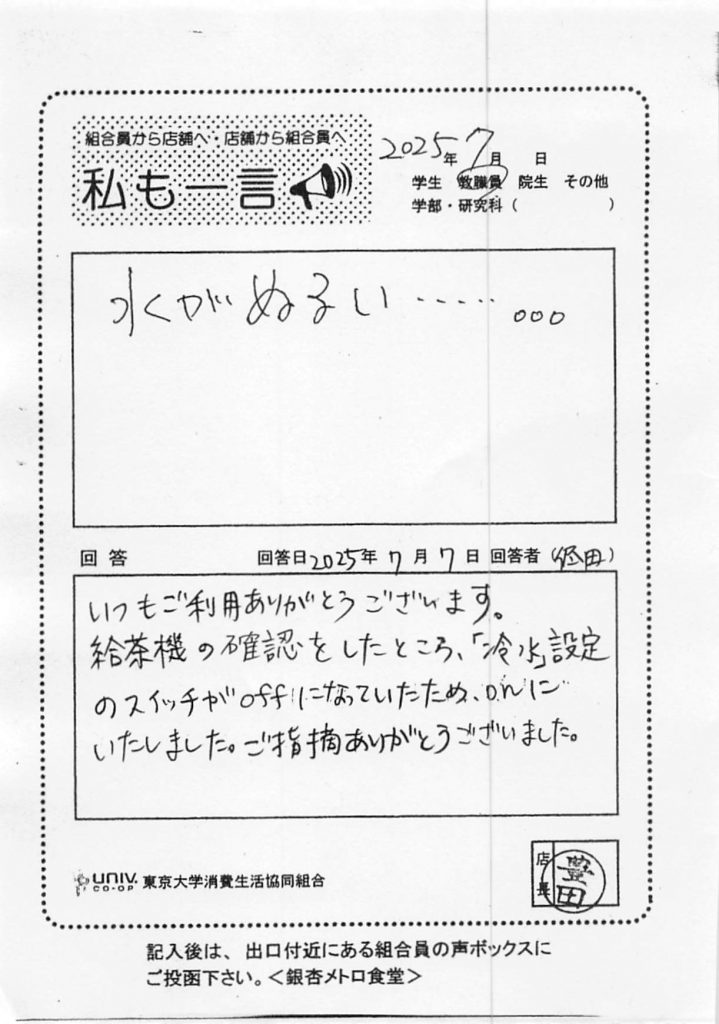 組合員から店舗へ・店舗から組合員へ
私も一言
2025年 7月 日
学生 教職員 院生 その他
学部・研究科( )
水がぬるい・・・・・。。。
回答 回答日2025年 7月 7日 回答者(経田)
いつもご利用ありがとうございます。
給茶機の確認をしたところ、「冷水」設定
のスイッチがoffになっていたため、onに
いたしました。ご指摘ありがとうございました。
店長
豊田
UNIV. CO-OP 東京大学消費生活協同組合
記入後は、出口付近にある組合員の声ボックスに
ご投函下さい。<銀杏メトロ食堂>